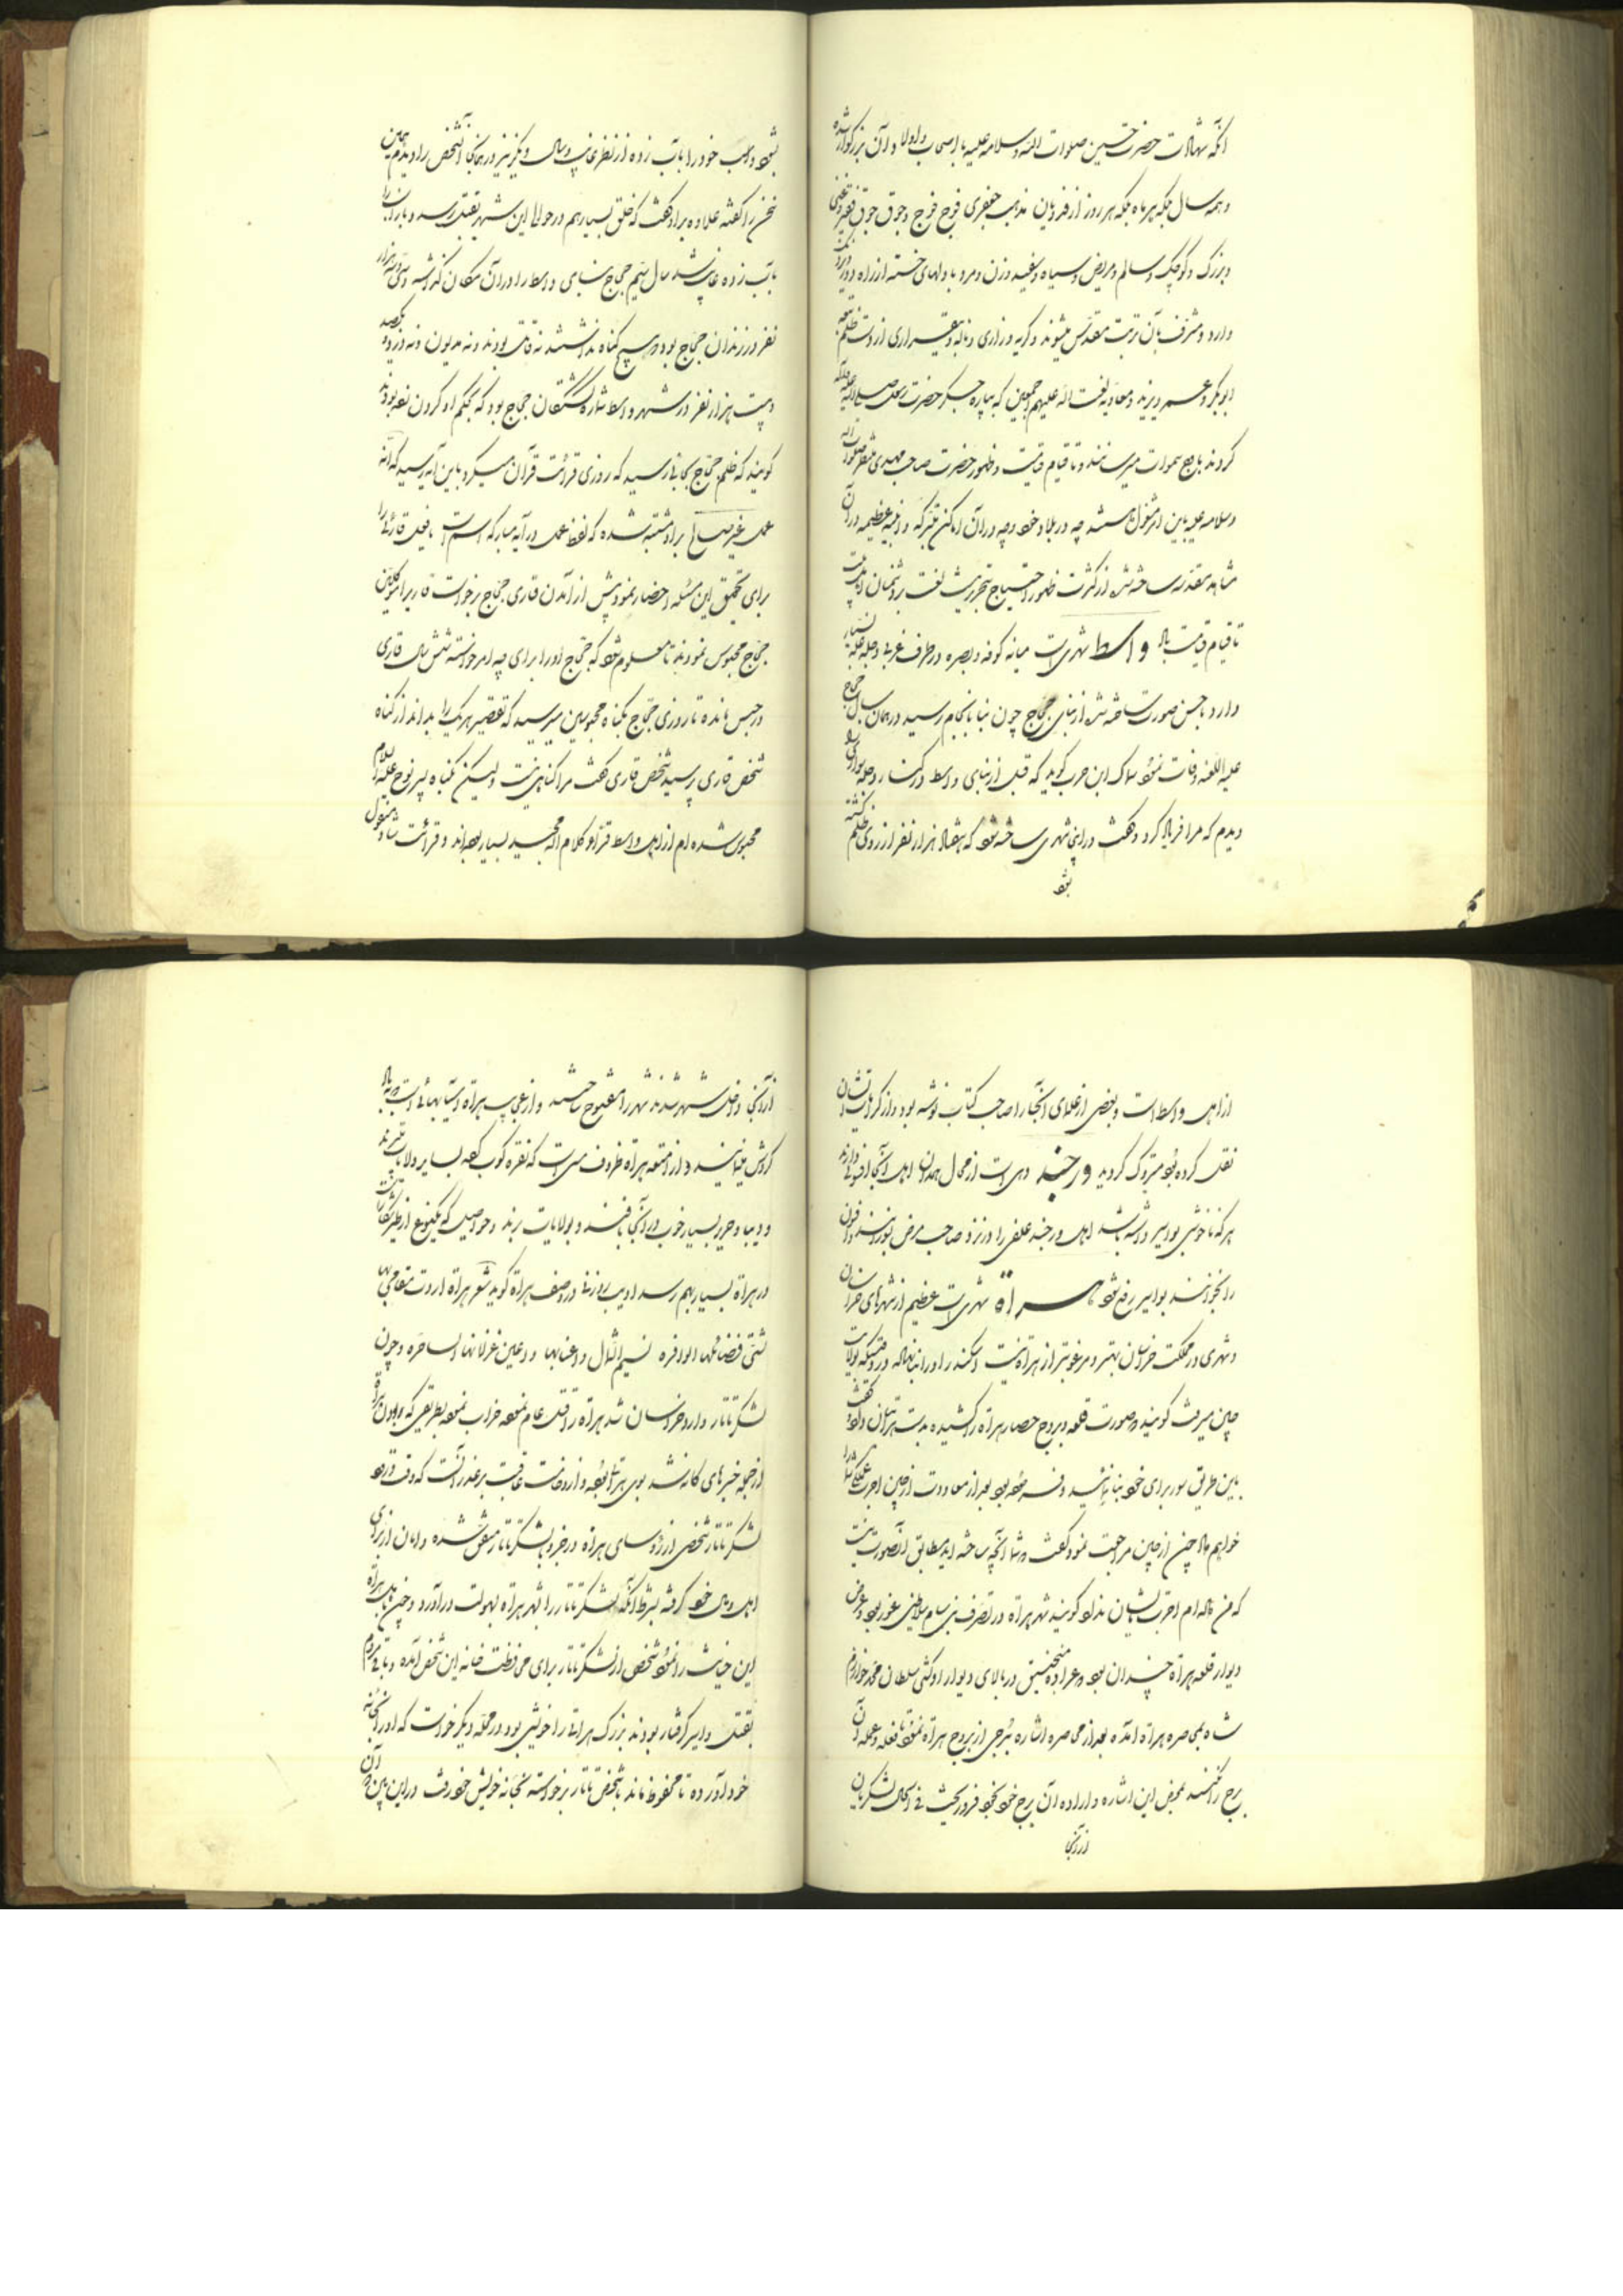 آنکه شهادت حضرت حسین صلوات الله و سلامه علیه با اصحاب و اولاد آن بزرگوار شده
و همه سال بلکه هر ماه بلکه هر روز از فدویان مذهب جعفری فوج فوج و جوق جوق فقیر و غنی
و بزرگ و کوچک و سالم و مریض و سیاه و سفید و زن و مرد با دلهای خسته از راه دور
وارد و مشرف بآن تربت مقدس میشوند و گریه و زاری و ناله و بیقراری از دست ظلم
ابوبکر و عمر و یزید و معاویه لعنت الله علیهم اجمعین که بپاره جگر حضرت رسول صلی الله علیه و آله
کردند باوج سموات میرسانند و تا قیام قیامت و ظهور حضرت صاحب مهدی منتظر صلوات الله
و سلامه علیه باین امر مشغول هستند چه در بلاد خود و چه در آن اماکن متبرکه و ابنیه عظیمه در آن
مشاهد مقدسه ساخته شده از کثرت ظهور احتیاج بتحریر نیست لعنت بر دشمنان اهل بیت
تا قیام قیامت باد واسط شهری است میانه کوفه و بصره در طرف غربی دجله غله بسیار
دارد باحسن صورت ساخته شده از بنای حجاج چون بنا بانجام رسید در همان سال حجاج
علیه اللعنه وفات نمود سماک ابن حرب گوید که قبل از بنای واسط در کنار دجله سواری
دیدم که مرا فریاد کرد و گفت در اینجا شهری ساخته شود که هشتاد هزار نفر از روی ظلم کشته
شود
شود و اسب خود را بآب زده از نظر غایب و سال دیگر نیز در همانجا آنشخص را دیدم همین
سخن را گفته علاوه بر او گفت که خلق بسیار هم در حوالی این شهر بقتل رسد و باز اسب را
بآب زده غایب شد سال سیم حجاج بنای واسط را در آن مکان گذاشته سی و سه هزار
نفر در زندان حجاج بود هیچ گناه نداشتند نه قاتل بودند و نه مدیون و نه دزد یکصد
و بیست هزار نفر در شهر واسط شماره کشتگان حجاج بود که بحکم او گردن زده بودند
گویند که ظلم حجاج بجائی رسید که روزی قرائت قرآن میکرد باین آیه رسید که انه
عمل غیر صالح بر او مشتبه شده که لفظ عمل در آیه مبارکه اسم است یا فعل قارئی را
برای تحقیق این مسئله احضار نمود پیش از آمدن قاری حجاج برخواست قاری را موکلین
حجاج محبوس نمودند تا معلوم شود که حجاج او را برای چه امر خواسته شش سال قاری
در حبس مانده تا روزی حجاج بگناه محبوسین میرسید که تقصیر هر یک را بداند از گناه
شخص قاری پرسید شخص قاری گفت مرا گناهی نیست ولیکن بگناه پسر نوح علیه السلام
محبوس شده‌ام از اهل واسط قراء کلام الله مجید بسیار بوده‌اند و قرائت مشغول
از اهل واسط است و بعضی از عقلای آنجا را صاحب کتاب نوشته بود و از کرامات ایشان
نقل کرده بود متروک گردید ورجند دهی است از محال همدان اهل آنجا افسونی دارند
هر که ناخوشی بواسیر داشته باشد اهل ورجند علفی را در نزد صاحب مرض بسوزانند و افسون
را بخوانند بواسیر رفع شود هراة شهری است عظیم از شهرهای خراسان
و شهری در مملکت خراسان بهتر و مرغوبتر از هراة نیست اسکندر او را بنا نهاده در وقتیکه بولایت
چین میرفت گویند صورت قلعه و بروج حصار هراة را کشیده بدست هراتیان داده گفت
باین طریق سور برای خود بنا نمائید و خود رفته بود بعد از معاودت از چین اجرت عملگی شما را
خواهم داد چون از چین مراجعت نمود گفت شما آنچه ساخته‌اید مطابق آنصورت نیست
که من داده‌ام اجرت بایشان نداد گویند شهر هراة در تصرف بنی سام سلاطین غور بود و عرض
دیوار قلعه هراة چندان بود و عراده و منجنیق در بالای دیوار او کشی سلطان محمد خوارزم
شاه بمحاصره هراة آمده بعد از محاصره اشاره ببرجی از بروج هراة نمود تا فعله و عمله آن
برج را بکنند بمحض این اشاره و اراده آن برج خود بخود فرو ریخت فی الحال لشکریان
از آنجا
از آنجا داخل شهر شدند شهر را مفتوح ساختند و از غرایب هراة آسیابهائی است که باد
گردش مینمایند و از امتعه هراة ظروف مسی است که نقره کوب کرده بسایر ولایات میبرند
و دیبا و حریر بسیار خوب در آنجا بافند و بولایات برند و حواصل که یکنوع از طیور شکاری است
در هراة بسیار بهم رسد ادیب زوزنی در وصف هراة گوید شعر هراة اردت مقامی بها
لشتی فضائلها الوافره نسیم الشمال و اعنابها و اعین غزلانها الساحره و چون
لشکر تاتار وارد خراسان شد هراة را قتل عام نموده خراب نموده بطریقی که
از جمله خبرهای
لشکر تاتار شخصی از رؤسای هراة در خفیه با لشکر تاتار متفق شده و امان از برای
اهل و مال خود گرفته بشرط آنکه لشکر تاتار را بشهر هراة بسهولت درآورد و چون باهل هراة
این خیانت را نمود شخصی از لشکر تاتار برای محافظت خانه این شخص آمده و باقی مردم
بقتل و اسیر گرفتار بودند بزرگ هراتی را خویشی بود در محله دیگر خواست که او را بخانه
خود آورده تا محفوظ ماند با شخص تاتار برخواسته بخانه خویش خود رفت در این بین آن